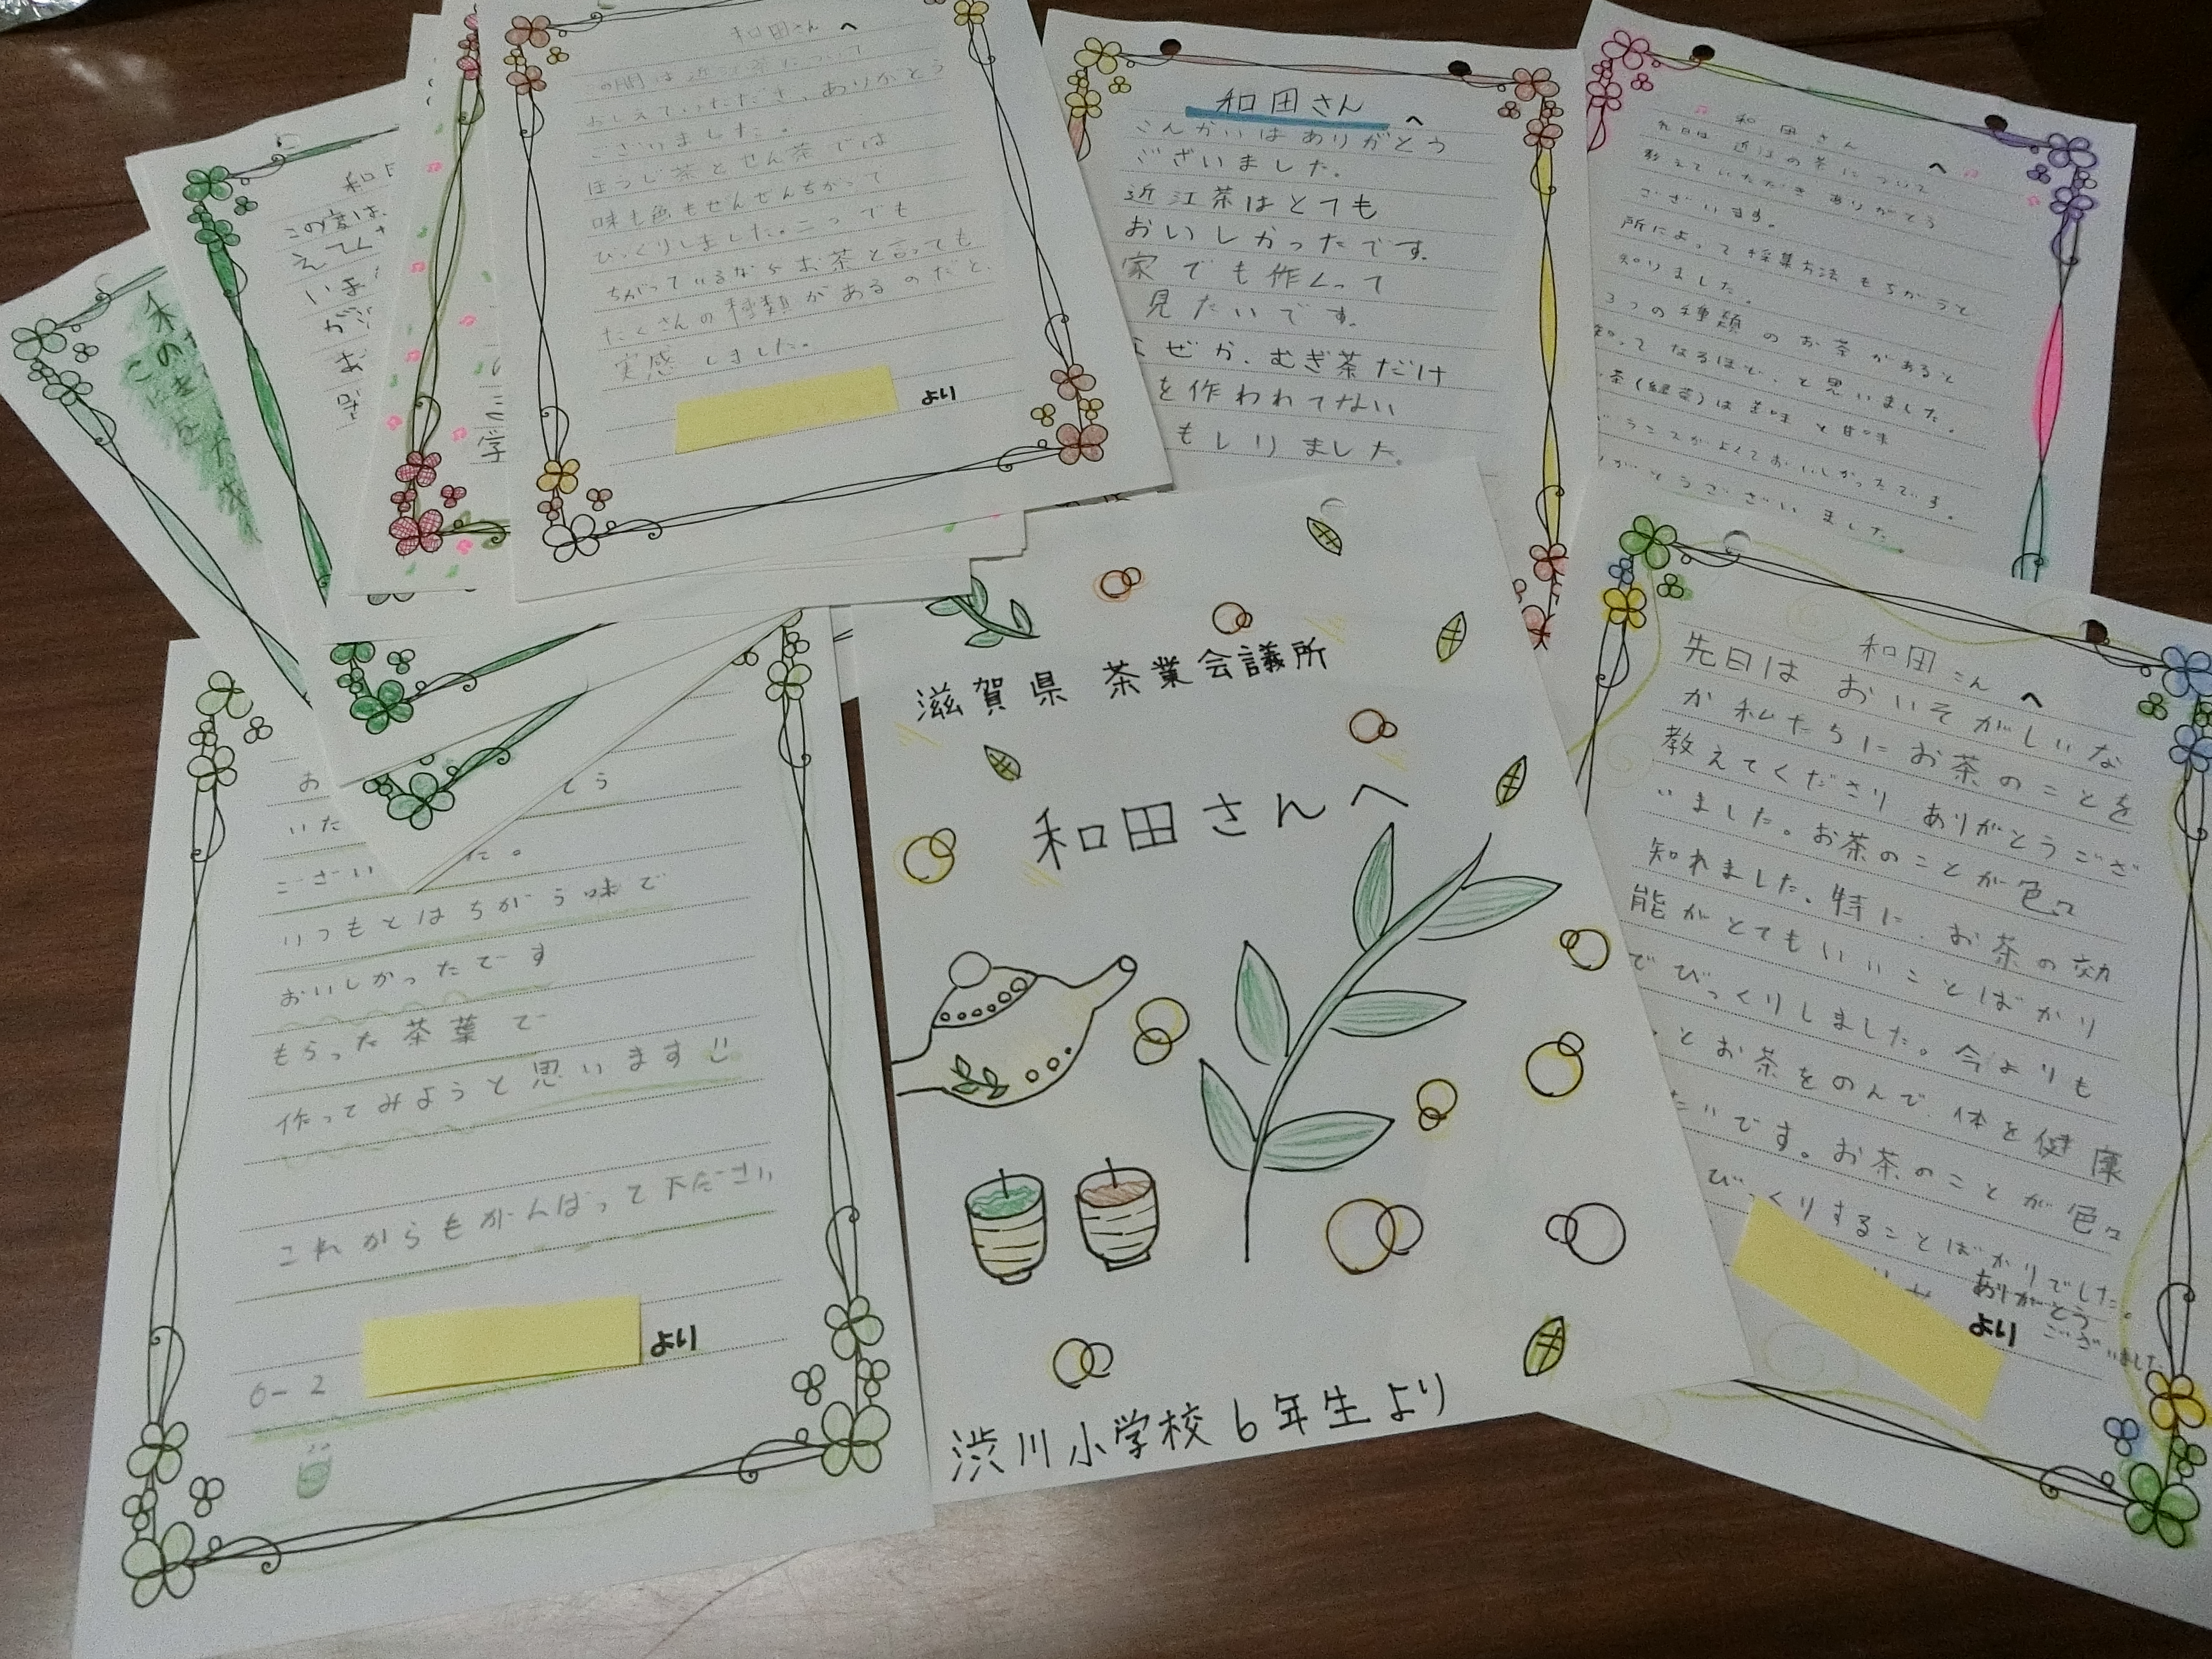 和田さんへ
の間は近江茶について
おしえていただき、ありがとう
ございました。
ほうじ茶とせん茶では
味も色もぜんぜんちがって
びっくりしました。二つでも
ちがっているならお茶と言っても
たくさんの種類があるのだと、
実感しました。
より
和田さんへ
こんかいはありがとう
ございました。
近江茶はとても
おいしかったです。
家でも作くって
見たいです。
なぜか、むぎ茶だけ
を作われてない
もしりました。
和田さんへ
先日は近江の茶について
教えていただきありがとう
ございます。
所によって採集方法もちがうと
知りました。
3つの種類のお茶があると
知ってなるほど、と思いました。
茶(緑茶)は苦味と甘味
がよくておいしかったです。
がとうございました。
この度は、
学
滋賀県 茶業会議所
和田さんへ
渋川小学校6年生より
ござい
いつもとはちがう味で
おいしかったです
もらった茶葉で
作ってみようと思います
これからもがんばって下ださい
6-2 より
和田さんへ
先日はおいそがしいな
か私たちにお茶のことを
教えてくださりありがとうござ
いました。お茶のことが色々
知れました。特に、お茶の効
能がとてもいいことばかり
でびっくりしました。今よりも
とお茶をのんで、体を健康
たいです。お茶のことが色々
びっくりすることばかりでした。
ありがとう
ございました
より